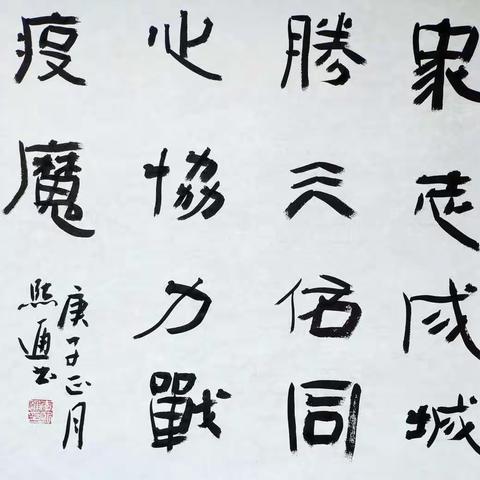 眾志成城
勝天佑同
心協力戰
疫魔
庚子正月
熙通书